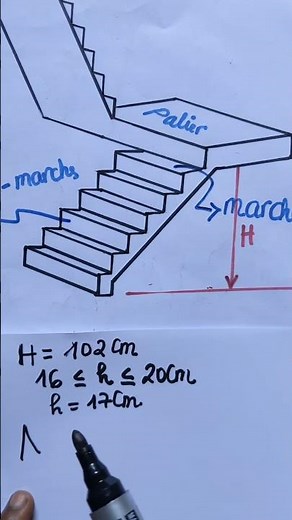 Palier
- marchs
march
H
H = 102 cm
16 ≤ h ≤ 20 cm
h = 17 cm